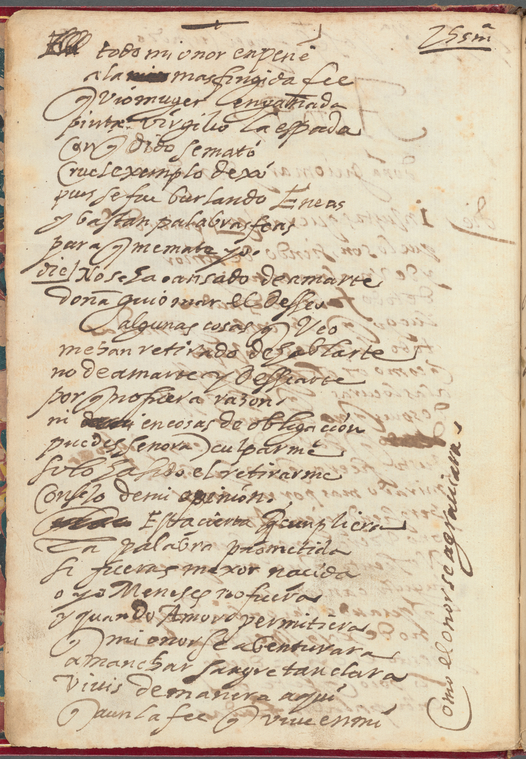 25 sm
todo mi onor enpeñe
a la mas fingida fee
q vio muger engañada
pinta Virgilio la espada
con q dido se mató
cruel exemplo dexó
pues se fue burlando Eneas
y bastan palabras feas
para q me mate yo.
die/ No se ha cansado de amarte
doña guiomar el desseo
algunas cosas q veo
me han retirado de hablarte
no de amarte y dessearte
porq no fuera razon
ni en cosas de obligación
puedes señora culparme
solo ha sido el retirarme
consejo de mi openion.
Esta cierta q cumpliera
la palabra prometida
si fueras mexor nacida
o yo Meneses no fuera
y quando Amor permitiera
q mi onor se abenturara
a manchar sangre tan clara
viuis de manera aqui
q aun la fee q viue en mi
Como el onor se agrauiara